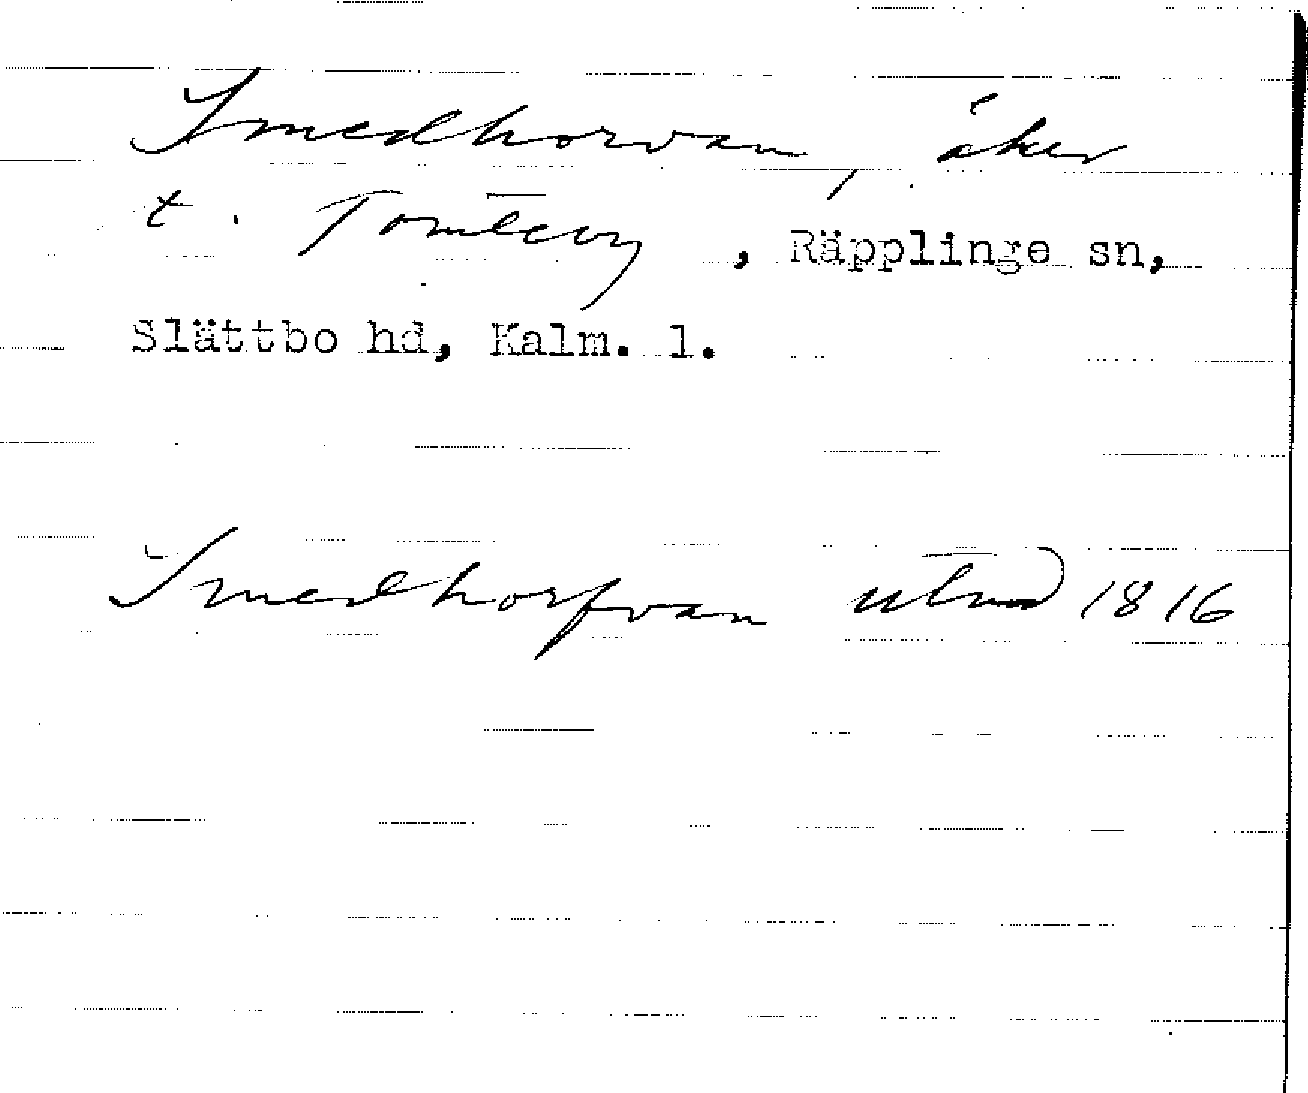 Smedhorvan, åker
t. Tomteby, Räpplinge sn,
Slättbo hd, Kalm. l.
Smedhorfvan 1816